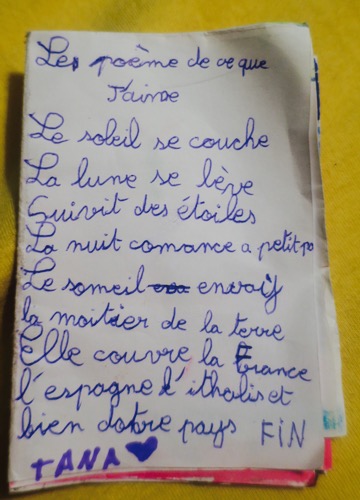 Les poème de ce que
J'aime
Le soleil se couche
La lune se lève
Suivit des étoiles
La nuit comance a petit po
Le someil envaij
la moitier de la terre
Elle couvre la France
l'espagne l'ithalis et
bien dotre pays FIN
TANA